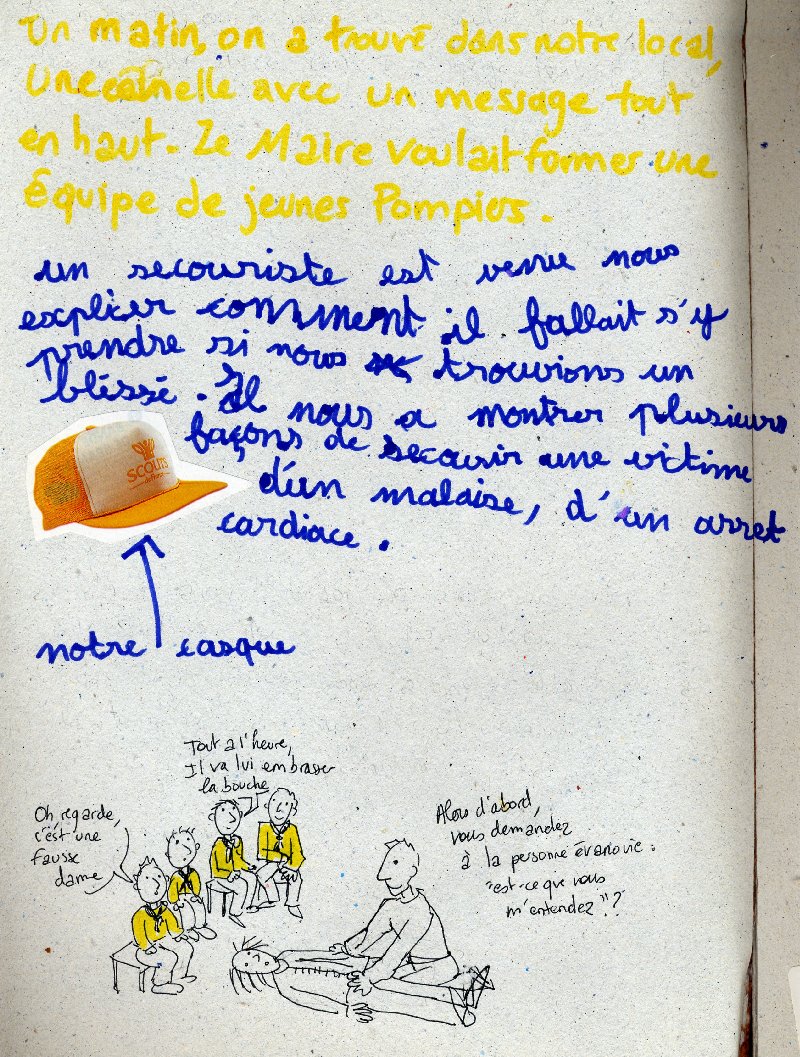 Un matin, on a trouvé dans notre local,
Une échelle avec un message tout
en haut. Le Maire voulait former une
Équipe de jeunes Pompiers.
un secouriste est venu nous
expliqer comment il fallait s'y
prendre si nous trouvions un
bléssé. Il nous a montrer plusieurs
façons de secourir une victime
d'un malaise, d'un arret
cardiace.
SCOUTS
notre casque
Tout a l'heure,
Il va lui embrasser
la bouche
Oh regarde,
c'est une
fausse
dame
Alors d'abord,
vous demandez
à la personne évanouie :
"est-ce que vous
m'entendez"?